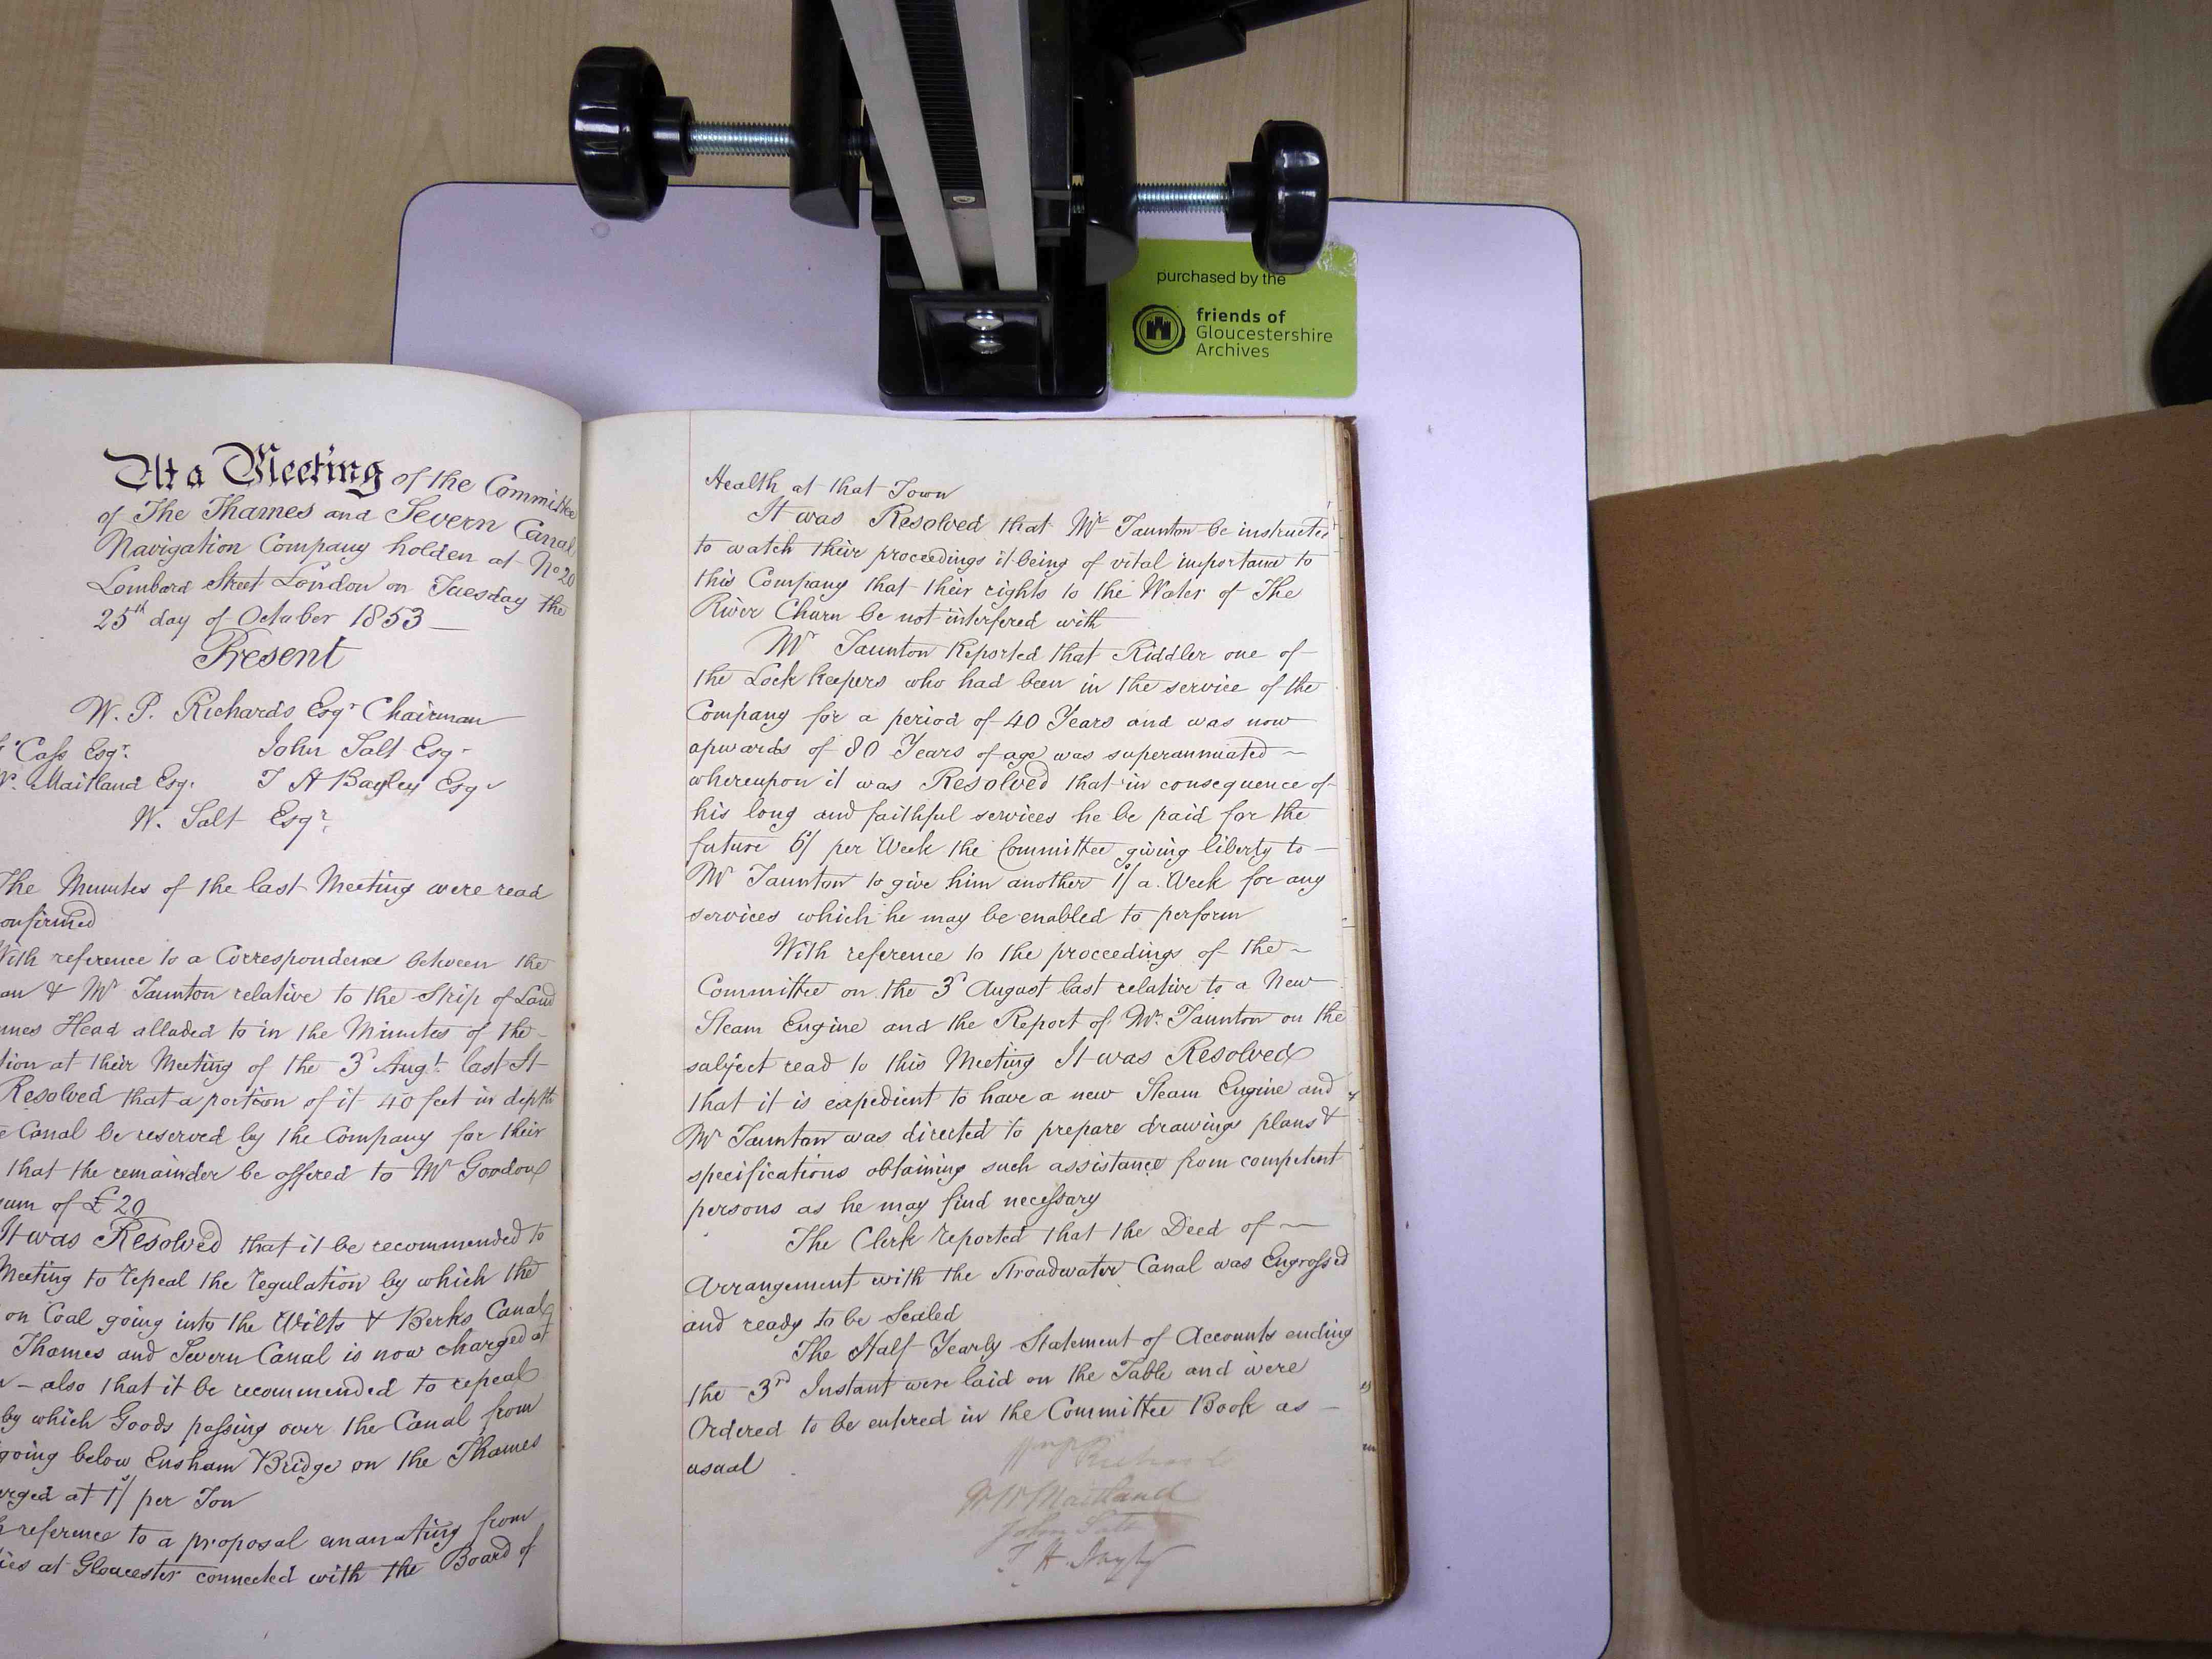 purchased by the
friends of
Gloucestershire
Archives
At a Meeting of the Committee
of The Thames and Severn Canal
Navigation Company holden at No 20
Lombard Street London on Tuesday the
25th day of October 1853
Present
W. P. Richards Esqr Chairman
Cass Esqr. John Salt Esqr
W. Maitland Esqr. T H Bayley Esqr
W. Salt Esqr.
The Minutes of the last Meeting were read
onfirmed
With reference to a Correspondence between the
an & Mr Taunton relative to the Strip of Land
mes Head alluded to in the Minutes of the
tion at their Meeting of the 3d Augt. last It
Resolved that a portion of it 40 feet in depth
e Canal be reserved by the Company for their
that the remainder be offered to Mr Goodon
um of £20
It was Resolved that it be recommended to
Meeting to repeal the regulation by which the
on Coal going into the Wilts & Berks Canal
Thames and Severn Canal is now charged at
- also that it be recommended to repeal
by which Goods passing over the Canal from
going below Ensham Bridge on the Thames
rged at 1s/ per Ton
reference to a proposal emanating from
ies at Gloucester connected with the Board of
Health at that Town
It was Resolved that Mr Taunton be instructed
to watch their proceedings it being of vital importance to
this Company that their rights to the Water of The
River Churn be not interfered with
Mr Taunton Reported that Riddler one of
the Lock keepers who had been in the service of the
Company for a period of 40 Years and was now
upwards of 80 Years of age was superannuated
whereupon it was Resolved that in consequence of
his long and faithful services he be paid for the
future 6s/ per Week the Committee giving liberty to
Mr Taunton to give him another 1s/ a Week for any
services which he may be enabled to perform
With reference to the proceedings of the
Committee on the 3d August last relative to a New
Steam Engine and the Report of Mr. Taunton on the
subject read to this Meeting It was Resolved
that it is expedient to have a new Steam Engine and
Mr Taunton was directed to prepare drawings plans &
specifications obtaining such assistance from competent
persons as he may find necessary
The Clerk reported that the Deed of
Arrangement with the Stroudwater Canal was Engrossed
and ready to be Sealed
The Half Yearly Statement of Accounts ending
the 3rd Instant were laid on the Table and were
Ordered to be entered in the Committee Book as
usual
Wm P Richards
W Maitland
John Salt
T. H. Bayley